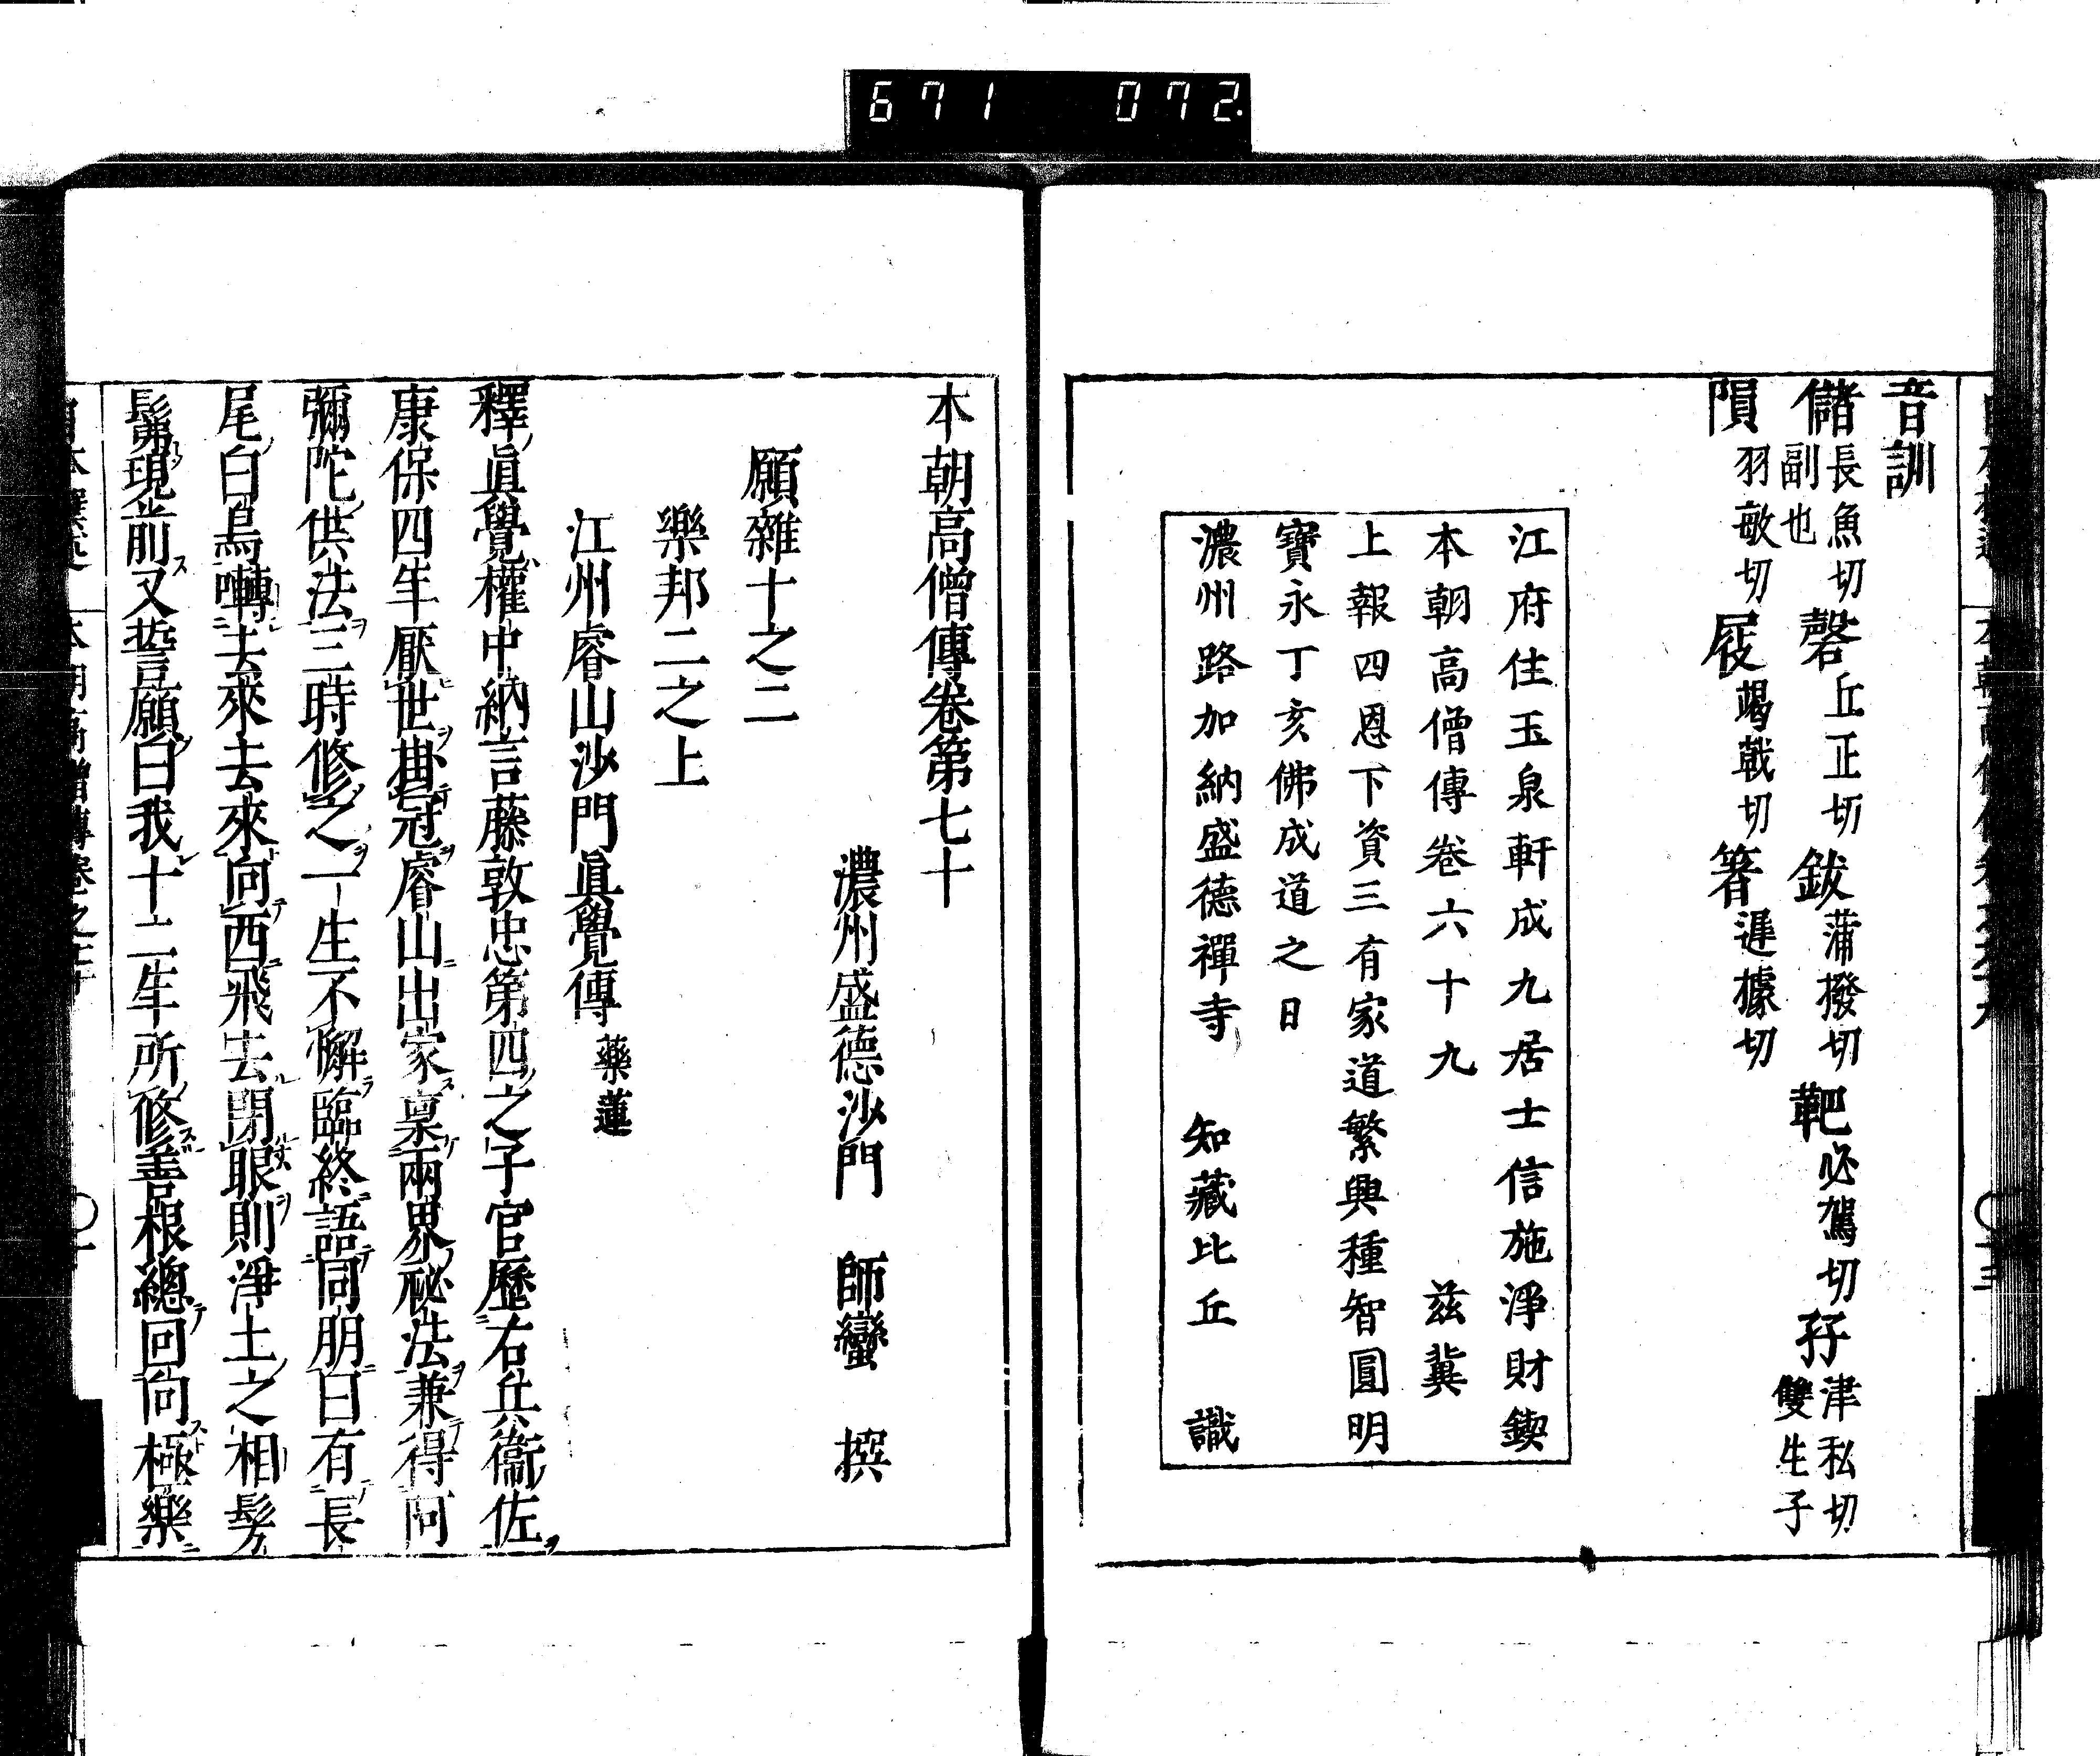 671 072.
音訓
儲 長魚切 副也 磬 丘正切 鈸 蒲撥切 靶 必駕切 孖 津私切 雙生子
隕 羽敏切 屐 竭戟切 箸 遲據切
江府住玉泉軒成九居士信施淨財鍥
本朝高僧傳卷六十九 茲冀
上報四恩下資三有家道繁興種智圓明
寶永丁亥佛成道之日
濃州路加納盛德禪寺 知藏比丘 識
本朝高僧傳卷第七十
濃州盛德沙門 師蠻 撰
願雜十之二
樂邦二之上
江州睿山沙門眞覺傳 藥蓮
釋眞覺權中納言藤敦忠第四之子官歷右兵衞佐
康保四年厭世掛冠睿山出家稟兩界祕法兼得阿
彌陀供法三時修之一生不懈臨終語同朋曰有長
尾白鳥囀去來去來向西飛去閉眼則淨土之相髣
髴現前又誓願曰我十二年所修善根總回向極樂
本朝高僧傳卷之七十 一